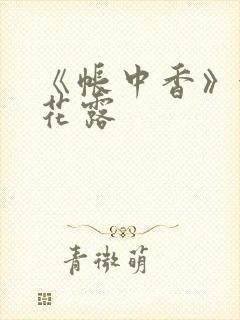 《帐中香》
花露
青微萌